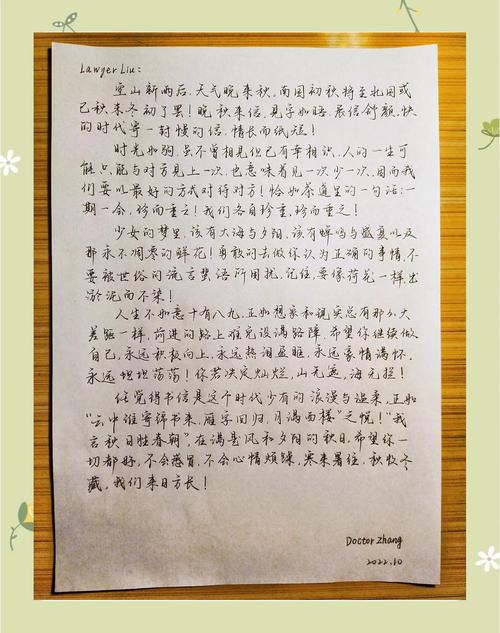 Lawyer Liu：
空山新雨后，天气晚来秋。南国初秋将至北国或
已秋末冬初了罢！晚秋来信，见字如晤，展信舒颜，快
的时代寄一封慢的信，情长而纸短！
时光如驹，虽不曾相见但已有幸相识，人的一生可
能只能与对方见上一次，也意味着见一次少一次，因而我
们要以最好的方式对待对方！恰如茶道里的一句话：一
期一会，珍而重之！我们各自珍重，珍而重之！
少女的梦里，该有大海与夕阳，该有蝉鸣与盛夏以及
那永不凋零的鲜花！勇敢的去做你认为正确的事情，不
要被世俗的流言蜚语所困扰，记住，要像荷花一样出
淤泥而不染！
人生不如意十有八九，正如想象和现实总有那么大
差距一样，前进的路上难免设满路障，希望你继续做
自己，永远积极向上，永远热泪盈眶，永远豪情满怀，
永远坦坦荡荡！你若决定灿烂，山无遮，海无拦！
总觉得书信是这个时代少有的浪漫与温柔，正如
“云中谁寄锦书来，雁字回归，月满西楼”之悦！“我
言秋日胜春朝”，在满是风和夕阳的秋日，希望你一
切都好，不会感冒，不会心情烦躁，寒来暑往，秋收冬
藏，我们来日方长！
Doctor Zhang
2022.10